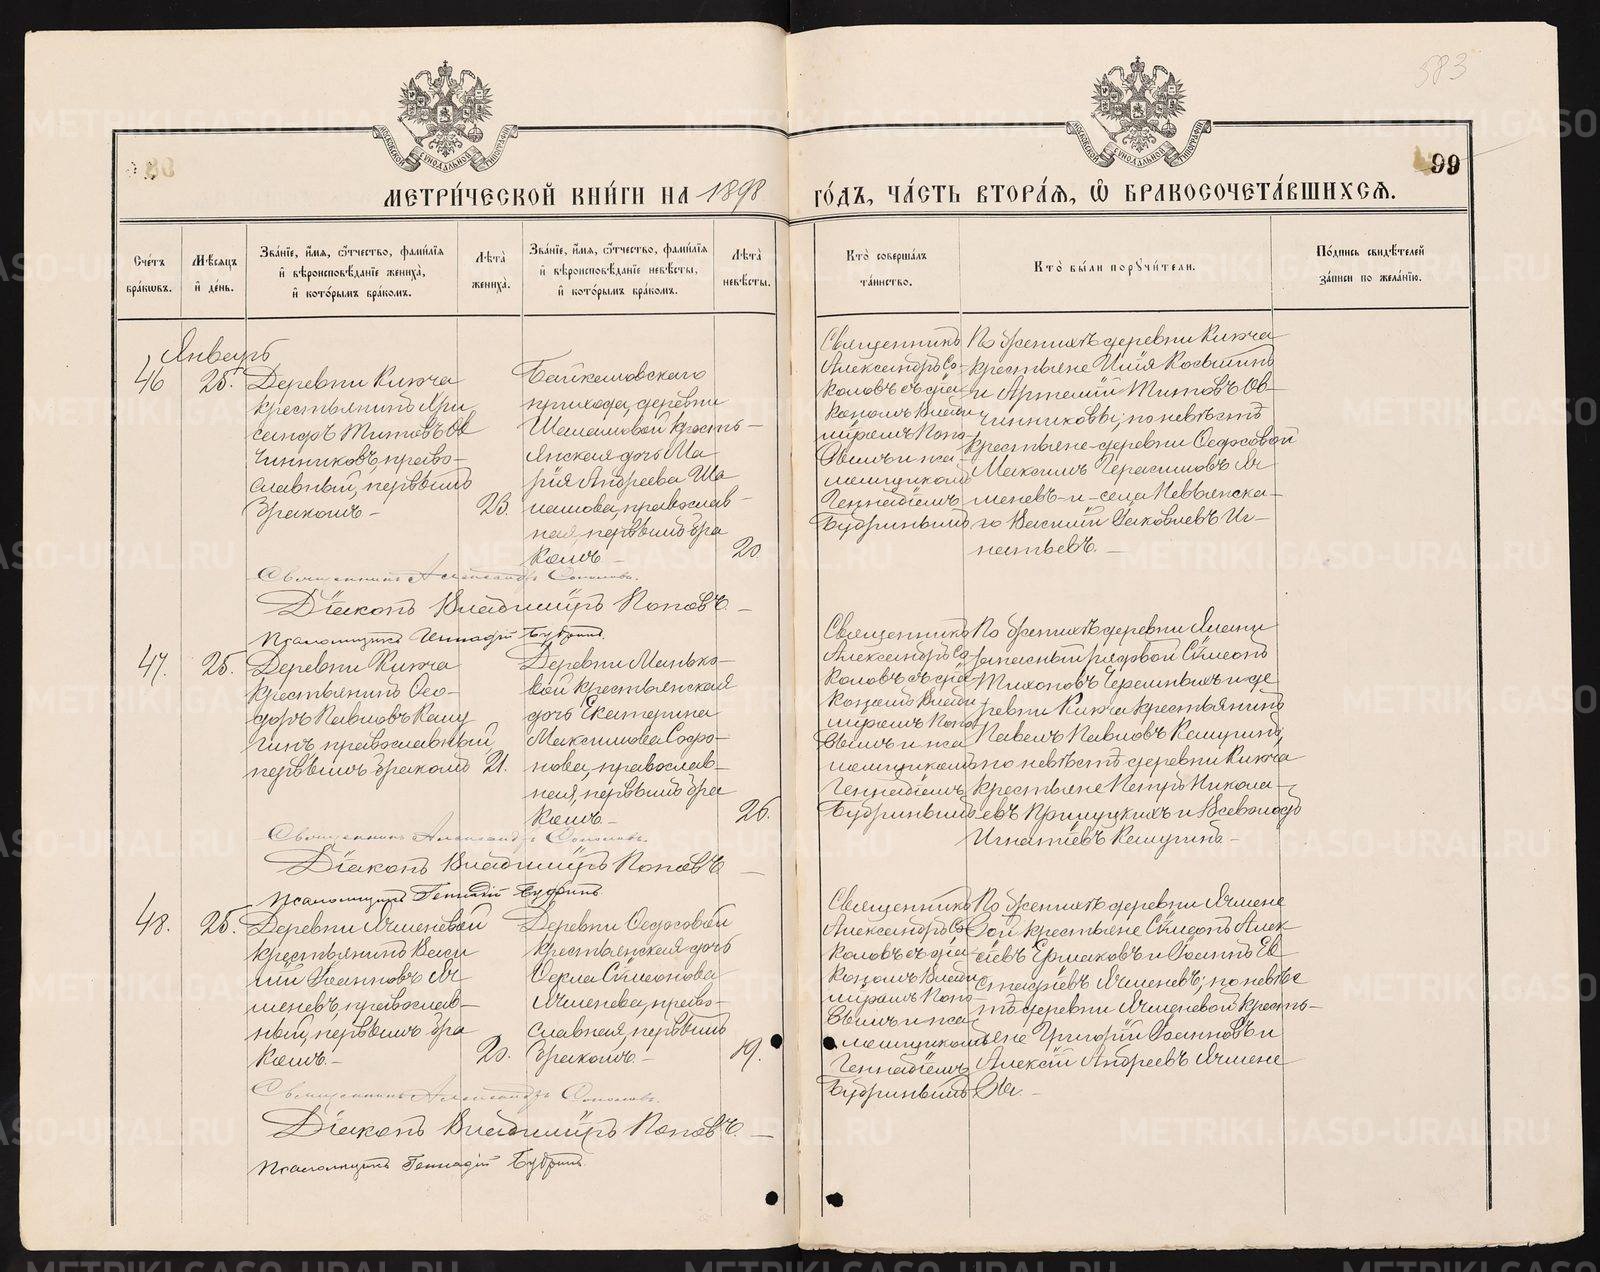 583
99
МЕТРИ́ЧЕСКОЙ КНИ́ГИ НА 1898 ГО́ДЪ, ЧА́СТЬ ВТОРА́Я, Ѽ БРАКОСОЧЕТА́ВШИХСЯ.
МОСКОВСКОЙ СѴНОДАЛЬНОЙ ТИПОГРАФІИ
МОСКОВСКОЙ СѴНОДАЛЬНОЙ ТИПОГРАФІИ
Сче́тъ бра́кѡвъ.
Мѣ́сяцъ и҆ де́нь.
Зва́нїе, и҆́мя, ѻ҆́тчество, фами́лїя и҆ вѣроисповѣ́данїе жениха̀, и҆ кото́рымъ бра́комъ.
Лѣ́та жениха̀.
Зва́нїе, и҆́мя, ѻ҆́тчество, фами́лїя и҆ вѣроисповѣ́данїе невѣ́сты, и҆ кото́рымъ бра́комъ.
Лѣ́та невѣ́сты.
Кто̀ соверша́лъ та́инство.
Кто̀ бы́ли порꙋчи́тели.
По́дпись свидѣ́телей за́писи по жела́нїю.
Январь
46
25.
Деревни Ключа
крестьянинъ
сандръ Титовъ Ов
чинниковъ, право-
славный, первымъ
бракомъ -
23.
Байкаловскаго
прихода, деревни
Шаламовой кресть-
янская дочь Ма
рія Андреева Ша
ламова, православ-
ная, первымъ бра
комъ -
20
Священникъ
Александръ Со-
коловъ съ діа-
кономъ Влади
міромъ Попо-
вымъ и пса-
ломщикомъ
Геннадіемъ
Будринымъ
По женихѣ деревни Ключа
крестьяне Илія Косьминъ
и Артемій Титовъ Ов-
чинниковы; по невѣстѣ
крестьяне деревни Ѳедосовой
Максимъ Герасимовъ Яч
меневъ и села Невьянска-
го Василій Іаковлевъ Иг-
натьевъ. -
Священникъ Александръ Соколовъ.
Діаконъ Владиміръ Поповъ -
Псаломщикъ Геннадій Будринъ.
47.
25.
Деревни Ключа
крестьянинъ Ѳео-
доръ Павловъ Кашу
гинъ, православный,
первымъ бракомъ
21.
Деревни Манько-
вой крестьянская
дочь Екатерина
Максимова Софо-
нова, православ-
ная, первымъ бра
комъ -
26.
Священникъ
Александръ Со
коловъ съ діа
кономъ Влади
міромъ Попо
вымъ и пса
ломщикомъ
Геннадіемъ
Будринымъ
По женихѣ деревни
запасный рядовой Сѵмеонъ
Тихоновъ Черемныхъ и де
ревни Ключа крестьянинъ
Павелъ Павловъ Кашугинъ,
по невѣстѣ деревни Ключа
крестьяне Петръ Никола-
евъ и Всеволодъ
Игнатіевъ Кашугинъ -
Священникъ Александръ Соколовъ.
Діаконъ Владиміръ Поповъ -
Псаломщикъ Геннадій Будринъ
48.
25.
Деревни Ячменевой
крестьянинъ Васи
лій Іоанновъ Яч
меневъ, православ-
ный, первымъ бра
комъ -
20.
Деревни Ѳедосовой
крестьянская дочь
Ѳекла Сѵмеонова
Ячменева, право-
славная, первымъ
бракомъ. -
19.
Священникъ
Александръ Со
коловъ съ діа-
кономъ Влади
міромъ Попо-
вымъ и пса-
ломщикомъ
Геннадіемъ
Будринымъ
По женихѣ деревни Ячмене
вой крестьяне Сѵмеонъ Алек
сіевъ Ермаковъ и Іоаннъ Ев
стафіевъ Ячменевъ; по невѣс
тѣ деревни Ячменевой кресть-
яне Григорій Іоанновъ и
Алексій Андреевъ Ячмене
вы. -
Священникъ Александръ Соколовъ.
Діаконъ Владиміръ Поповъ. -
Псаломщикъ Геннадій Будринъ.
METRIKI.GASO-URAL.RU